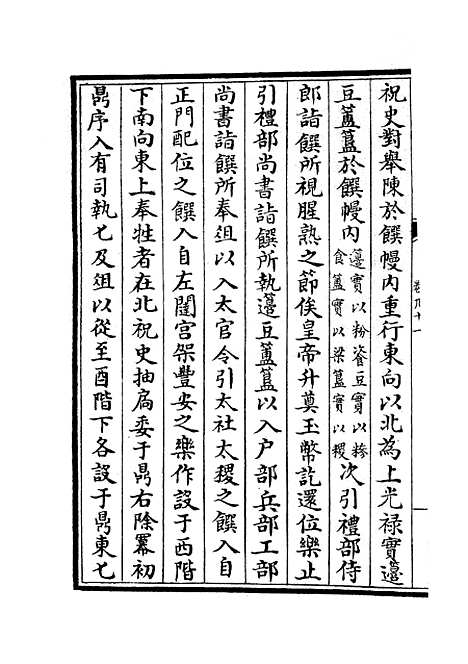 祝史對舉陳於饌幔内重行東向以北為上光禄實籩
豆簠簋於饌幔内籩實以粉餈豆實以糝食簠實以粱簋實以稷次引禮部侍
郎詣饌所視腥熟之節俟皇帝升奠玉幣訖還位樂止
引禮部尚書詣饌所執籩豆簠簋以入户部兵部工部
尚書詣饌所奉俎以入太官令引太社太稷之饌入自
正門配位之饌入自左闥宫架豐安之樂作設于西階
下南向東上奉牲者在北祝史抽扃委于鼎右除羃初
鼎序入有司執匕及俎以從至酉階下各設于鼎東匕
卷九十一